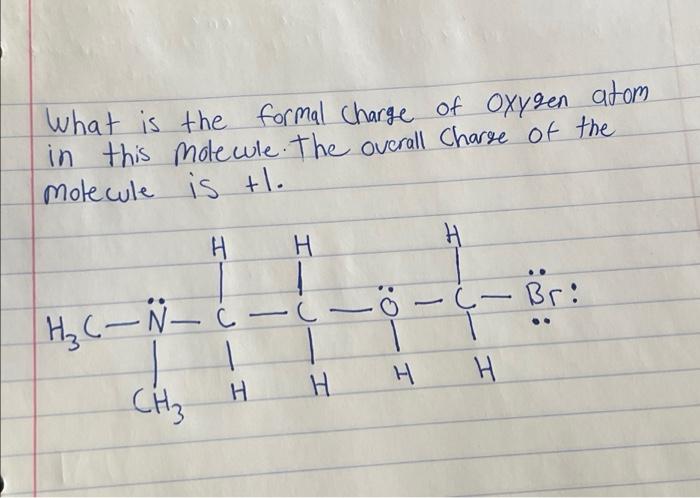 What is the formal charge of oxygen atom
in this molecule. The overall charge of the
molecule is +1.
H H H
H₃C—N̈—C—C—Ö—C—B̈r:
CH₃ H H H H